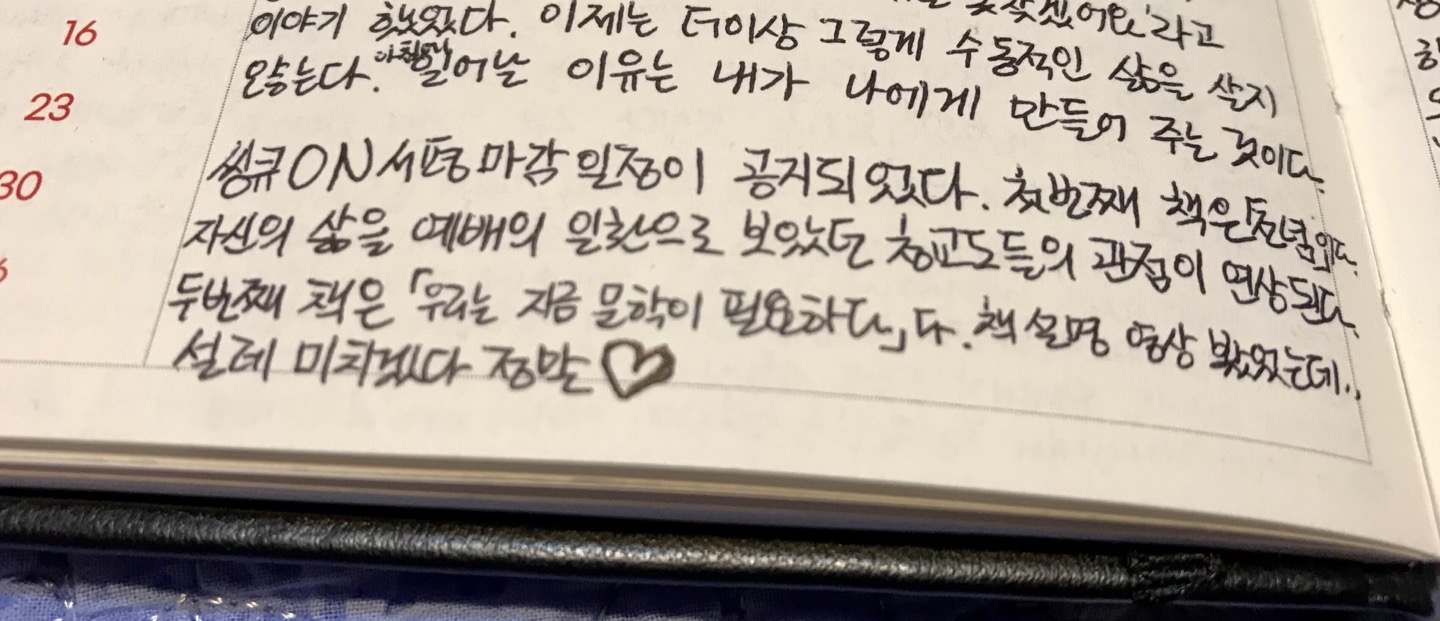 못찾겠어요'라고
16 이야기 했었다. 이제는 더이상 그렇게 수동적인 삶을 살지
23 않는다. 아침에 일어날 이유는 내가 나에게 만들어 주는 것이다.
30 씽큐ON 서평 마감 일정이 공지되었다. 첫번째 책은 「전념」이다.
자신의 삶을 예배의 일환으로 보았던 청교도들의 관점이 연상된다.
두번째 책은 「우리는 지금 문학이 필요하다」다. 책 설명 영상 봤었는데..
설레 미치겠다 정말 ♡